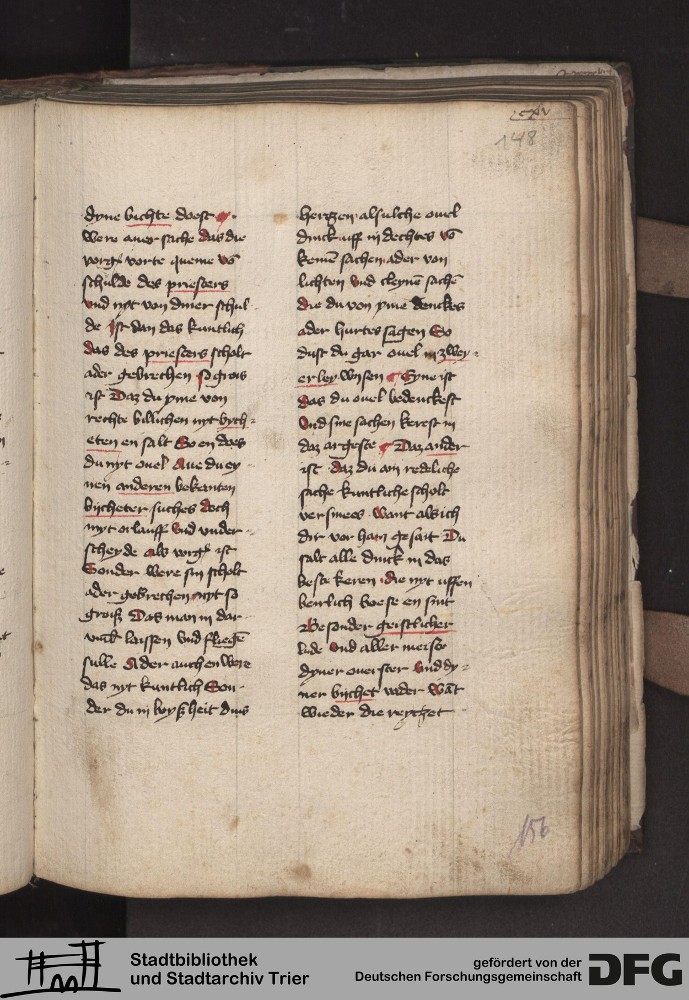 148
dyne bichte doest
were auer sache das die
vorgt vorte queme vō
schulde des priesters
vnd nyt von diner schul
de Ist dan das kuntlich
das des priesters scholt
ader gebrechen so grois
ist Daz du yme von
rechte billichen nyt bych=
eten en salt So en does
du nyt ouel Aue du ey
nen anderen bekanten
bycheter suches doch
nyt orlauff vnd vnder=
scheyde als vorgt ist
Sonder were sin scholt
ader gebrechen nyt so
groiß Das man in dar
laissen vnd fliegē
sulle Ader auch en were
das nyt kuntlich Son=
der du in boyßheit dins
hertzen alsulche ouel
dinck uff in dechtes vō
kenē sachen ader von
lichten vnd cleynē sachē
die du von yme denckes
ader hurtes sagen So
dust du gar ouel in zwey=
erley wysen Eyne ist
das du ouel bedenckest
vnd sine sachen kerest in
daz argeste Daz ander
ist daz du am redeliche
sache kuntliche scholt
versmees want als ich
dir vor han gesait Du
salt alle dinck in das
beste keren die nyt uffen
berlich boese en sint
Besonder geistlicher
lude vnd aller meiste
dyner ouerster vnd dy=
ner bychet vader Wāt
wieder die reytzet
156
Stadtbibliothek
und Stadtarchiv Trier
gefördert von der
Deutschen Forschungsgemeinschaft
DFG